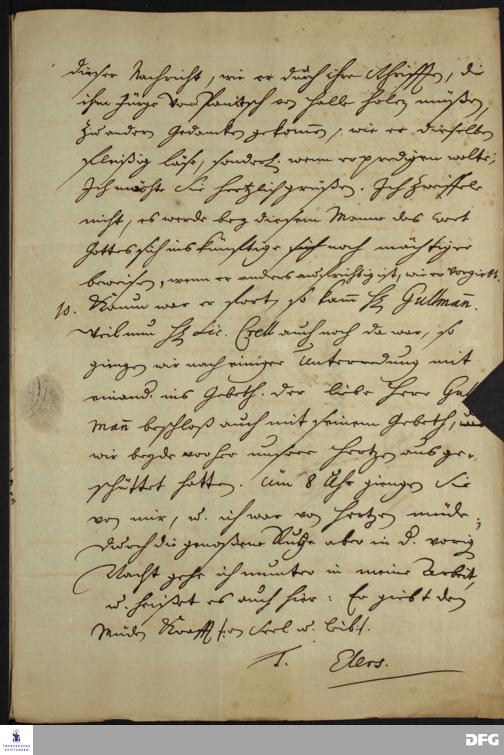 dieser Nachricht, wie er durch ihre Schrifften, die
ihm Jürge von Panitsch von Halle holen müßen,
zu andern Gedancken gekom̅en, wie er dieselben
fleißig läse, sonderl. wenn er predigen wolte;
Ich möchte Sie hertzlich grüßen. Ich zweiffele
nicht, es werde bey diesem Manne das Wort
Gottes sich ins künfftige noch mächtiger
beweisen, wenn er anders aufrichtig ist, wie er vorgiebt.
10. Kaum war er fort, so kam̅ H. Gullman̅.
Weil nun H. Lic. Crell auch noch da war, so
giengen wir nach einiger Unterredung mit
einand. ins Gebeth. Der liebe Herr Gull
man̅ beschloß auch mit seinem Gebeth,
wir beyde vorher unsere Hertzen ausge-
schüttet hatten. Um 8 Uhr giengen Sie
von mir, u. ich war von Hertzen müde;
durch die genoßene Ruhe aber in d. vorig
Nacht gehe ich munter in meine Arbeit,
u. heißet es auch hier: Er giebt den
Müden Krafft an Seel u. Leib.
S. Elers.
FRANCKESCHE STIFTUNGEN
DFG